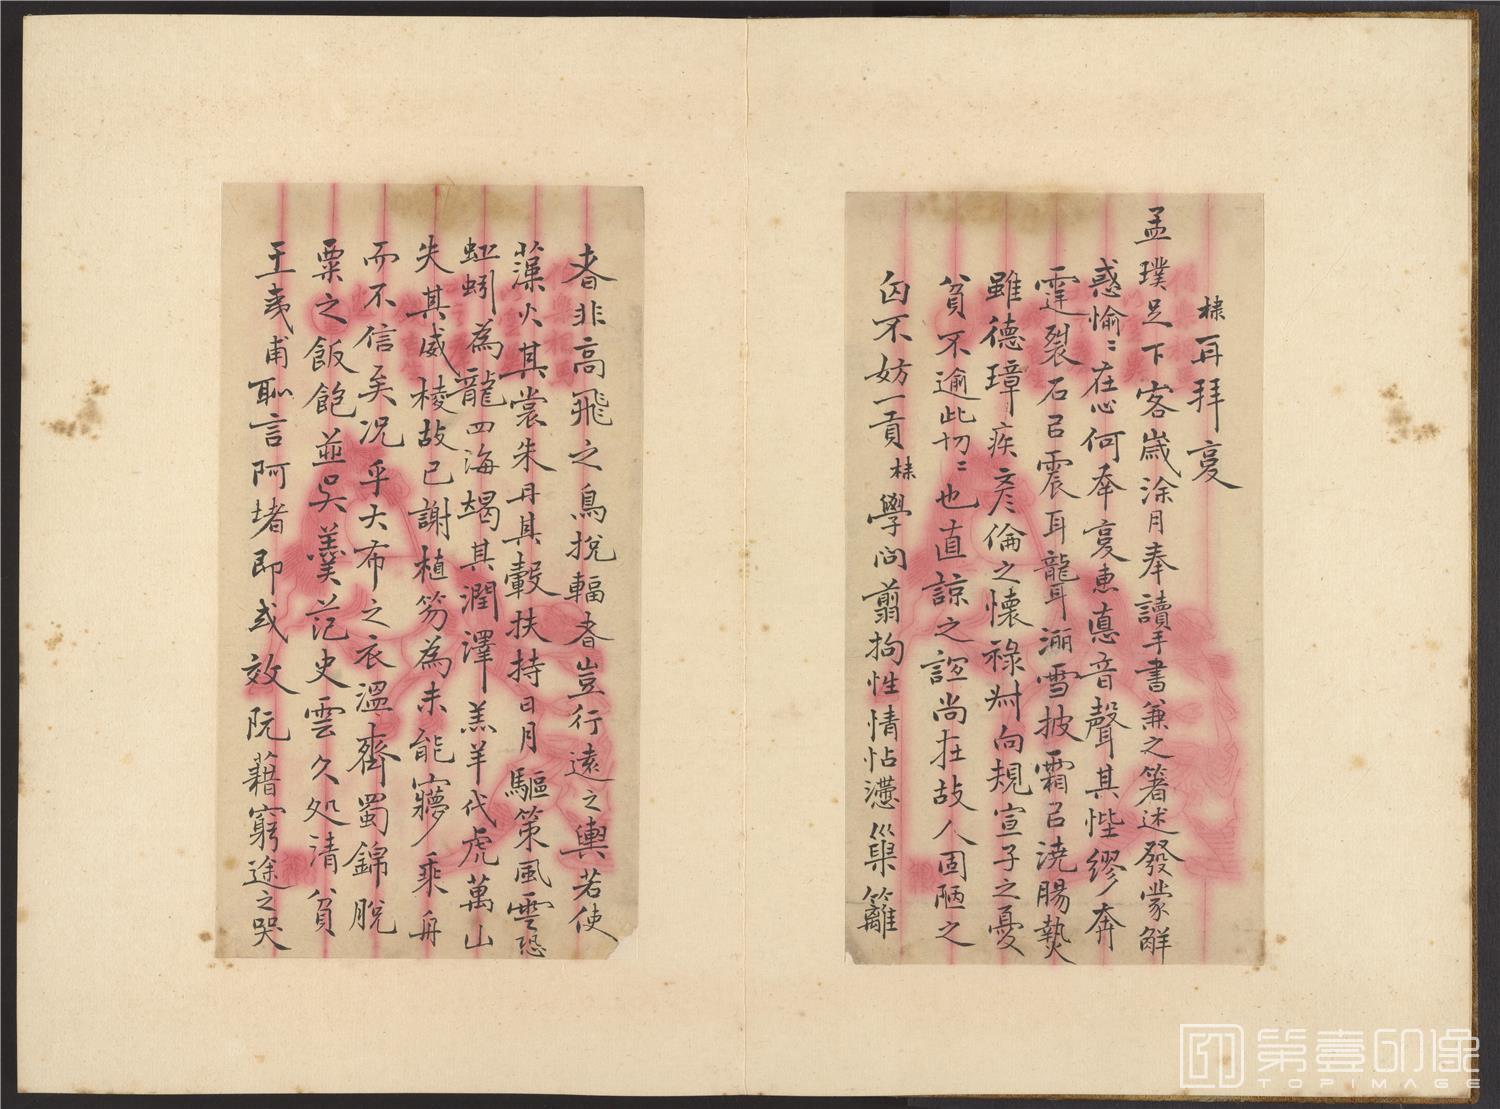 棣再拜𡕩
孟璞足下客歲涂月奉讀手書兼之箸述發蒙解
惑愉〻在心何奉𡕩惠悳音聲其悂繆奔
霆裂石㠯震耳聾洏雪披霜㠯澆腸㷍
雖德璋疾彥倫之懷祿叔向規宣子之憂
貧不逾此切〻也直諒之誼尚在故人固陋之
囟不妨一貢棣學問翦拘性情怗懘巢籬
者非高飛之鳥挩輻者豈行遠之輿若使
藻火其裳朱丹其轂扶持日月驅策風雲恐
蚯蚓為龍四海竭其潤澤羔羊代虎萬山
失其威棱故已謝植笏為未能寢乘舟
而不信矣况乎大布之衣溫齊蜀錦脫
粟之飯飽並吳羹范史雲久処清貧
王夷甫恥言阿堵即或效阮藉窮途之哭
第壹印像
TOPIMAGE